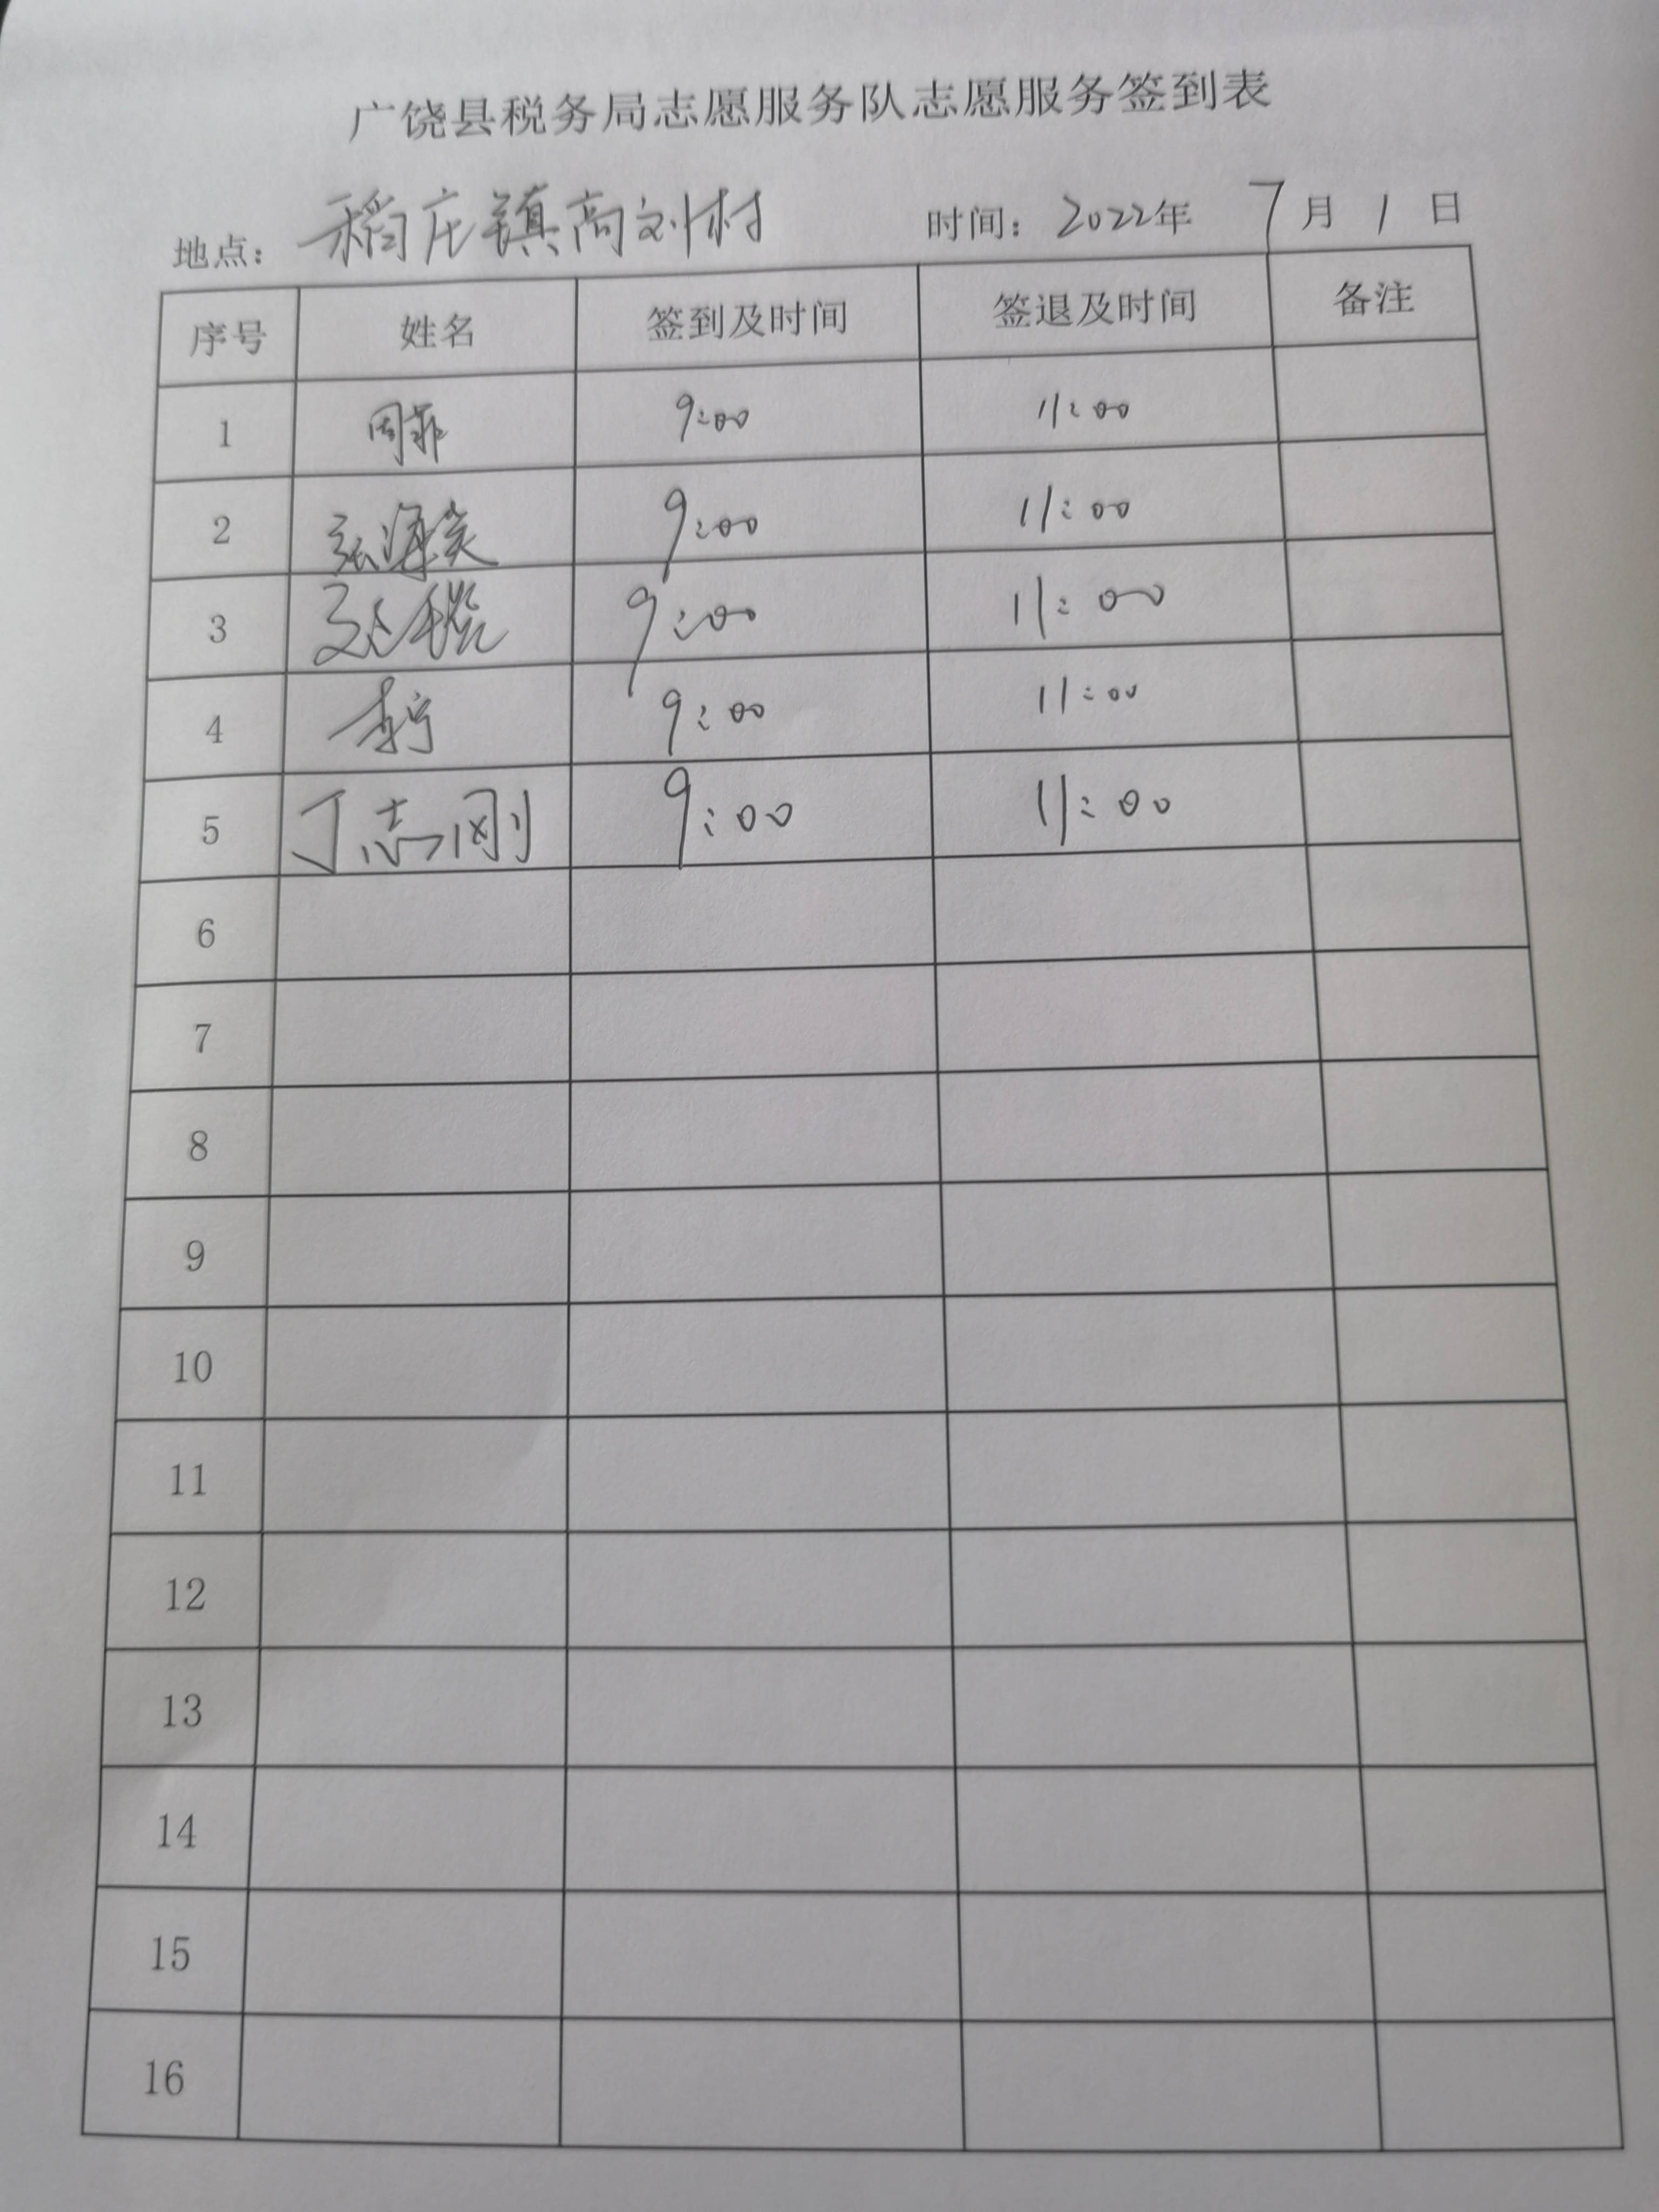 广饶县税务局志愿服务队志愿服务签到表
地点: 稻庄镇高刘村 时间: 2022年 7月 1 日
序号 姓名 签到及时间 签退及时间 备注
1 周菲 9:00 11:00
2 9:00 11:00
3 9:00 11:00
4 李宁 9:00 11:00
5 丁志刚 9:00 11:00
6
7
8
9
10
11
12
13
14
15
16